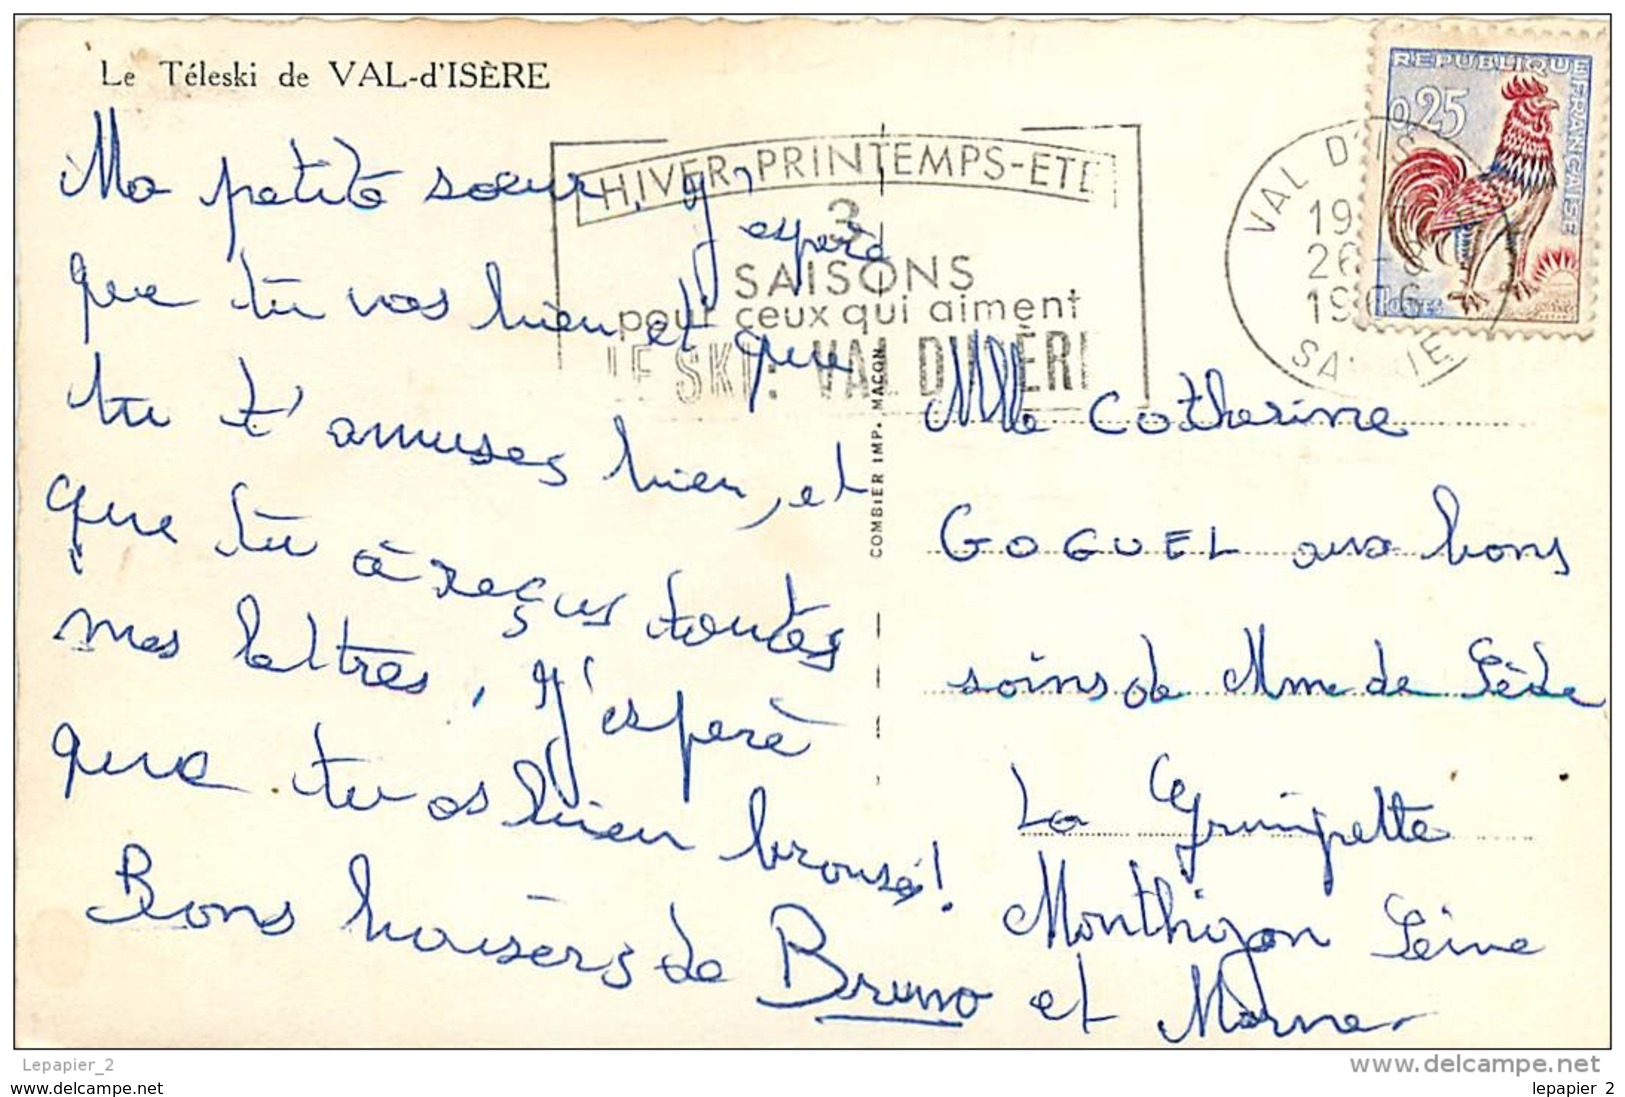 Le Téleski de VAL-d'ISÈRE
Ma petite sœur, j'espère
que tu vas bien et que
tu t'amuses bien, et
que tu à reçus toutes
mes lettres, j'esperè
que tu as bien bronsé!
Bons baisers de Bruno
HIVER-PRINTEMPS-ETE
3
SAISONS
pour ceux qui aiment
LE SKI: VAL D'ISÈRE
COMBIER IMP. MACON
VAL D'IS
19
26-
19 6
SAVOIE
REPUBLIQUE FRANÇAISE
0,25
POSTES
Mlle Catherine
GOGUEL aux bons
soins de Mme de
La Grimpette
Monthyon Seine
et Marne
Lepapier_2
www.delcampe.com
www.delcampe.com
lepapier_2